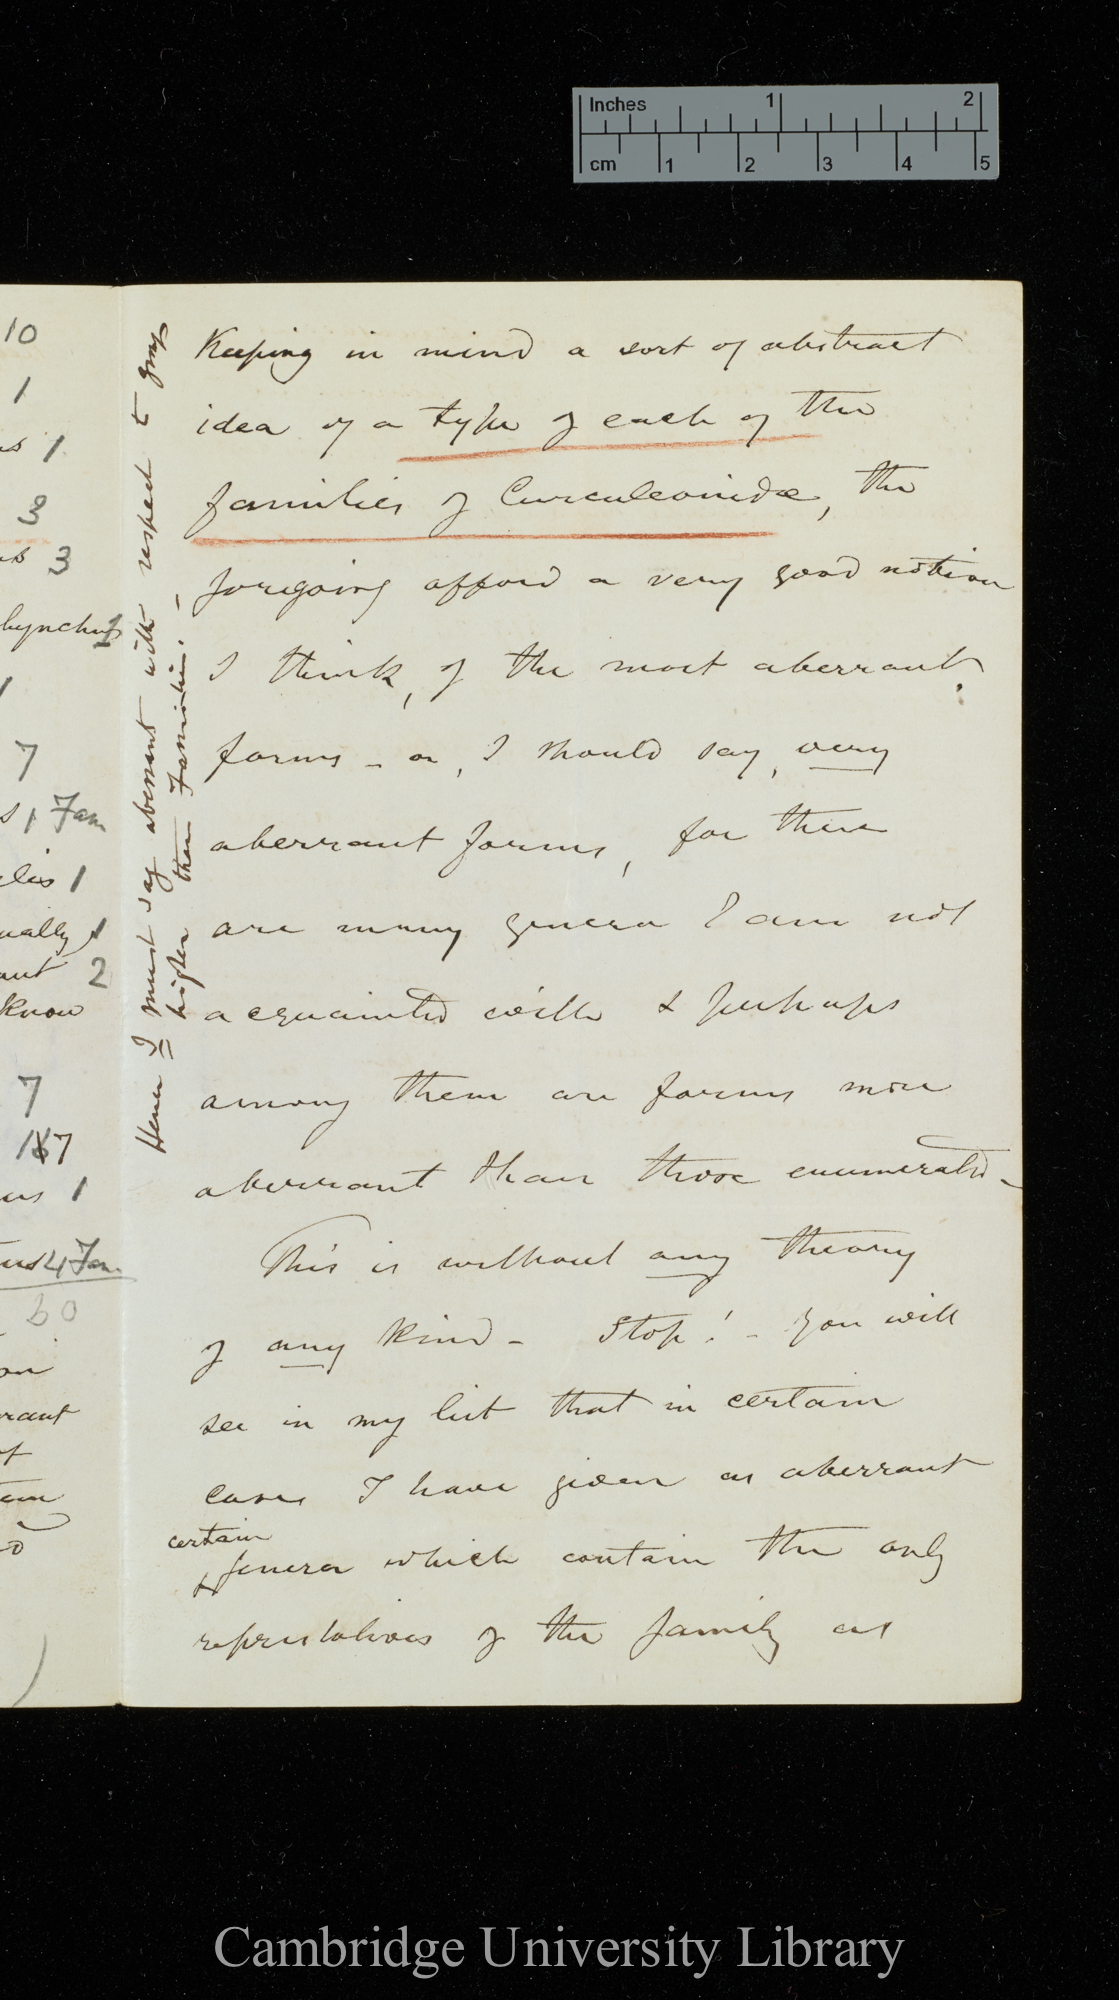 Inches 1 2
cm 1 2 3 4 5
10
1
s 1
3
3
hynchus 1
1
7
s 1 Fam
lis 1
ually 1
ant 2
know
7
7
us 1
4 Fam.
60
on
rant
of
Hence I must say aberrant with respect to groups
higher than Families. —
Keeping in mind a sort of abstract
idea of a type of each of the
families of Curculeonidæ, the
foregoing afford a very good notion
I think, of the most aberrant
forms – or, I should say, very
aberrant forms, for there
are many genera I am not
acquainted with & perhaps
among them are forms more
aberrant than those enumerated –
This is without any theory
of any kind – Stop! – You will
see in my list that in certain
cases I have given as aberrant
certain
genera which contain the only
represtatives of the family as
Cambridge University Library